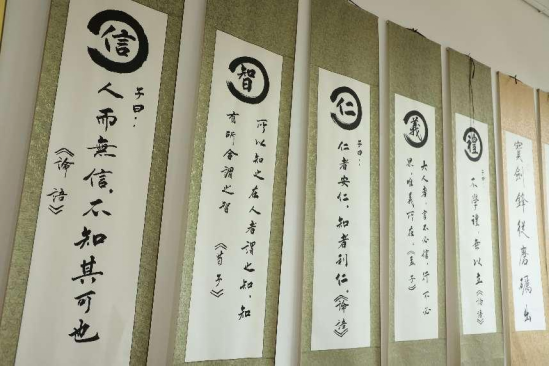 信
子曰：
人而無信，不知其可也
《論語》
智
所以知之在人者謂之知，知
有所合謂之智
《荀子》
仁
子曰：
仁者安仁，知者利仁。《論語》
義
大人者，言不必信，行不必
果，唯義所在。《孟子》
禮
子曰
不學禮，無以立《論語》
寶劍鋒從磨礪出